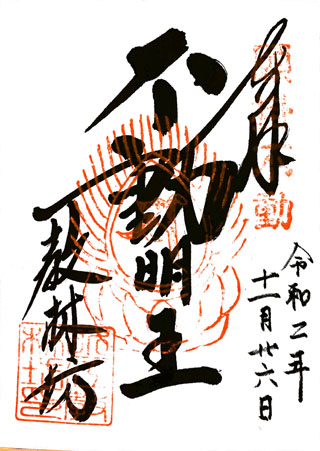 奉拝
令和二年
十一月廿六日
不動明王
教林坊